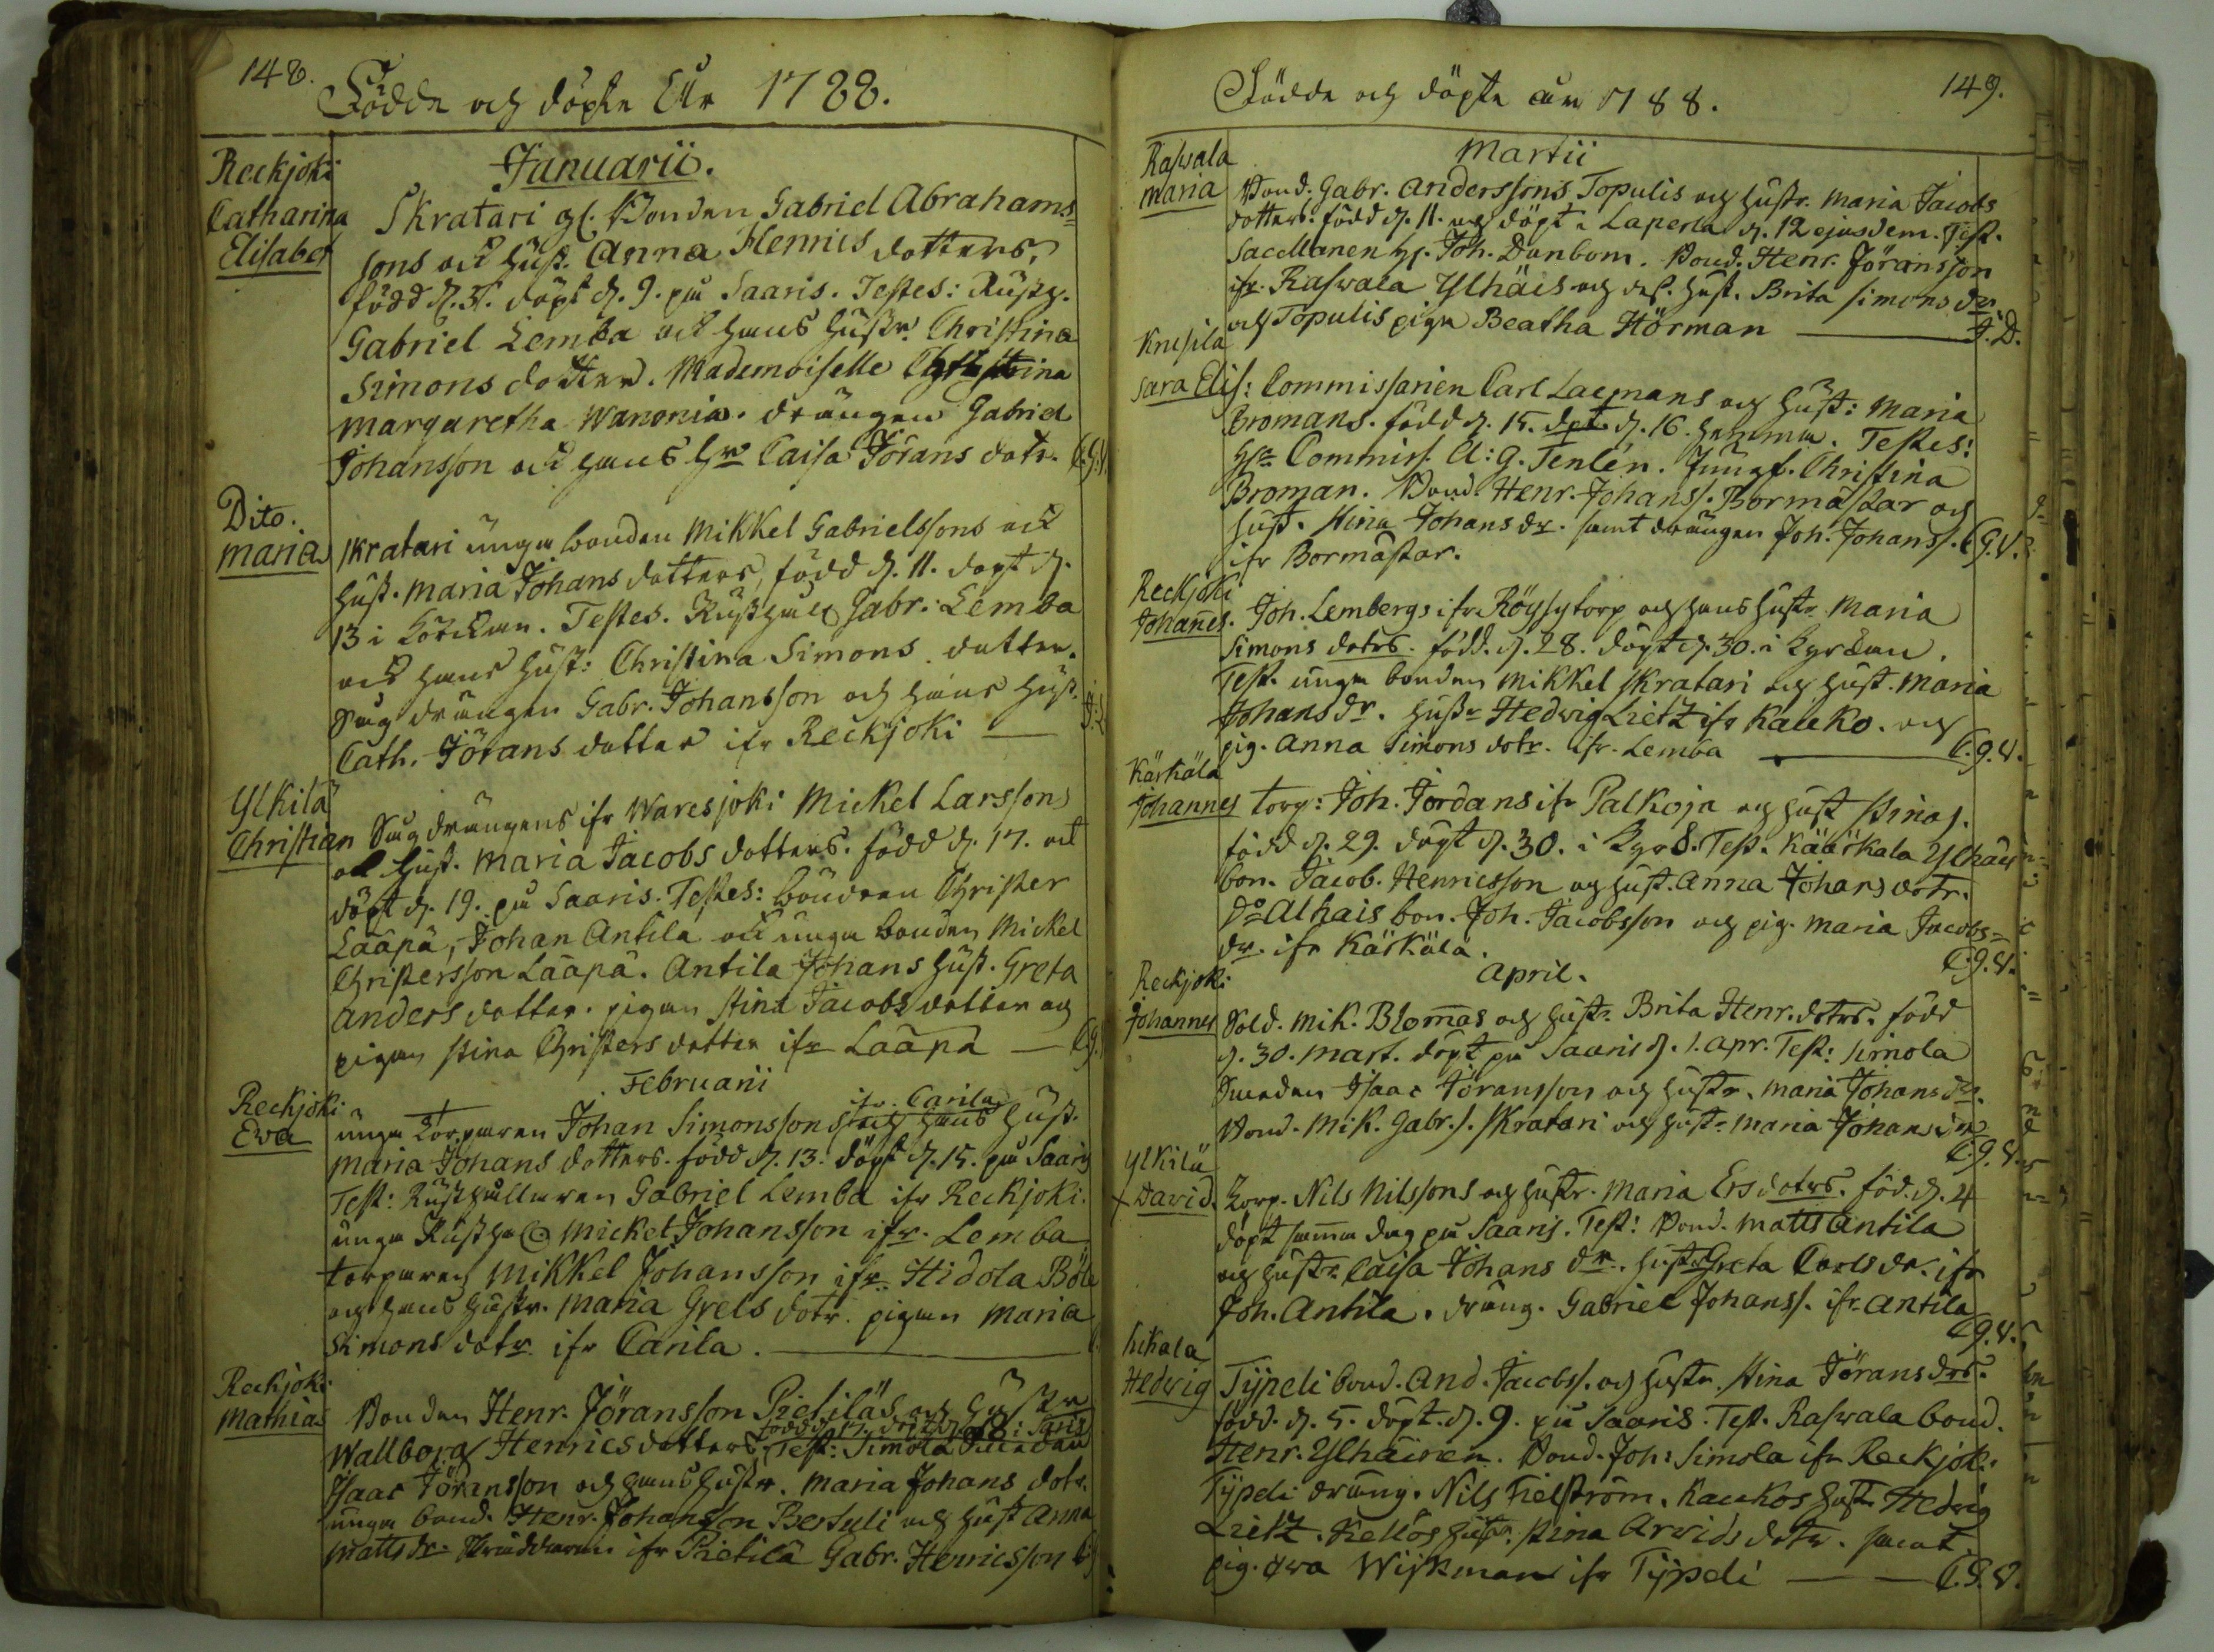 148.
Födde och döpte Åhr 1788.
Januarii.
Reckjoki
Catharina
Elisabet
Skratari gl. Bonden Gabriel Abrahams-
sons och Hust. Anna Henrics dotters,
född d. döpt d. 9. på Saaris. Testes: Rusth.
Gabriel Lemba och hans Hustr. Christina
Simons dotter. Mademoiselle Christina
Margaretha Wanonia. drängen Gabriel
Johansson och hans Hr Caisa Jörans dotr. C.G.V.
Dito.
Maria
Skratari unga bonden Mikkel Gabrielssons och
Hust. Maria Johans dotters, född d. 11. döpt d.
13 i Testes. Rusthåll Gabr. Lemba
och hans Hust: Christina Simons dotter.
drängen Gabr. Johansson och hans Hust.
Cath. Jörans dotter ifr Reckjoki —
Ylkilä
Christian
drängens ifr Waresjoki Mickel Larssons
och Hust. Maria Jacobs dotters. född d. 17. och
döpt d. 19. på Saaris. Testes: bonden Christer
Lääpä, Johan Antila och unga bonden Mickel
Christersson Lääpä. Antila Johans Hust. Greta
Anders dotter. pigan Stina Jacobs dotter och
pigan Stina Christers dotter ifr Lääpä — C.G.
Februarii
Reckjoki
Eva
ifr. Carila
unga Torparen Johan Simonssons och hans Hust.
Maria Johans dotters. född d. 13. döpt d. 15. på Saaris
Test: Rusthållaren Gabriel Lemba ifr Reckjoki.
unga Rusth Mickel Johansson ifr. Lemba
torparen Mikkel Johansson ifr. Hidola Böle
och hans Hustr. Maria Grels dotr. pigan Maria
Simons dotr ifr Carila. —
Reckjoki
Mathias
Bonden Henr. Jöransson Pietiläs och Hustr
född d. 17. döpt d. 18 i Saris
Wallborg Henrics dotters, Test: Simola
Isaac Jöransson och hans Hustr. Maria Johans dotr.
unga bond. Henr. Johansson Bertuli och Hust Anna
Matts dr. ifr Pietilä Gabr. Henricsson
149.
Födde och döpte åhr 1788.
Martii
Raswala
Maria
Bond. Gabr. Anderssons Topulis och Hustr. Maria Jacobs
dotters. född d. 11. och döpt i Laperla d. 12 ejusdem. Test.
Sacellanen Hr. Joh. Danbom. Bond. Henr. Jöransson
ifr. Raswala Ylhäis och dess Hust. Brita Simons dr
och Topulis piga Beatha Hörman — J.D.
Knesila
Sara Elis:
Commissarien Carl Lagmans och Hust: Maria
Bromans. född d. 15. dpt d. 16. hemma. Testes:
Hr Commiss. C: G. Tenlén. Jungf. Christina
Broman. Bond. Henr. Johanss. Bormästar och
Hust. Stina Johans dr. samt drängen Joh. Johanss. C.G.V.
ifr Bormästar.
Reckjoki
Johannes.
Joh. Lembergs ifr Röysytorp och hans Hustr. Maria
Simons dotrs. född. d. 28. döpt d. 30. i Kyrkan.
Test. unga bonden Mikkel Skratari och Hust. Maria
Johans dr. Hustr Hedwig Lietz ifr Kauko. och
pig. Anna Simons dotr. ifr. Lemba — C.G.V.
Kärkälä
Johannes
torp: Joh. Jordans ifr Palkoja och Hust Stina J.
född d. 29. döpt d. 30. i Kyrk. Test. Käärkala Ylhäis
bon. Jacob. Henricsson och Hust. Anna Johans dotr.
Do Alhais bon. Joh. Jacobsson och pig. Maria Jacobs-
dr. ifr Kärkälä. C.G.V.
April.
Reckjoki
Johannes
Sold. Mik. Blomas och Hustr. Brita Henr. dotrs. född
d. 30. Mart. döpt på Saaris d. 1. Apr. Test: Simola
Isaac Jöransson och Hustr. Maria Johans dr.
Bond. Mik. Gabr. S. Skratari och Hustr. Maria Johans dr
C.G.V.
Ylkilä
+ David.
Torp. Nils Nilssons och Hustr. Maria Ers dotrs. föd. d. 4
döpt samma dag på Saaris. Test: Bond. Matts Antila
och Hustr. Caisa Johans dr. Hustr Greta Carls dr. ifr
Joh. Antila. dräng. Gabriel Johanss. ifr. Antila
C.G.V.
Hedwig
Tijpeli bond. And. Jacobss. och Hustr. Stina Jörans drs.
född. d. 5. döpt. d. 9. på Saaris. Test. Raswala bond.
Henr. Ylhäinen. Bond. Joh: Simola ifr Reckjok.
Tijpeli dräng. Nils Fielström. Kaukos Hustr Hedvig
Lietz. Kellos Hustr. Stina Arvids dotr. samt
pig. Ewa Wijkman ifr Tijpeli — C.G.V.